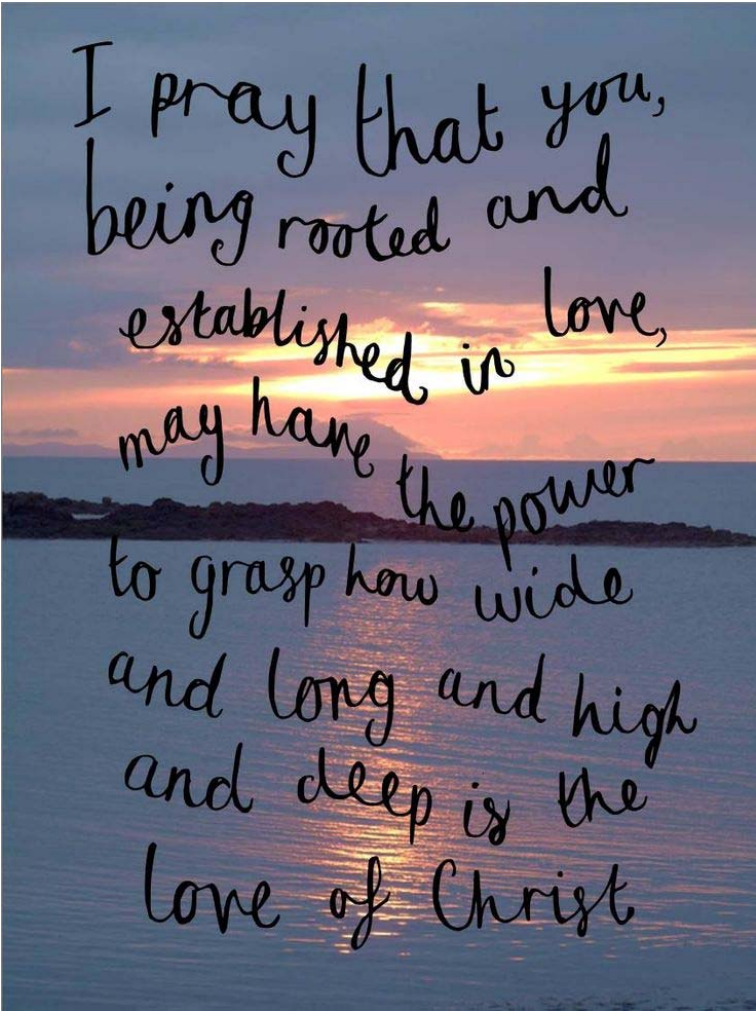 I pray that you,
being rooted and
established in love,
may have the power
to grasp how wide
and long and high
and deep is the
love of Christ